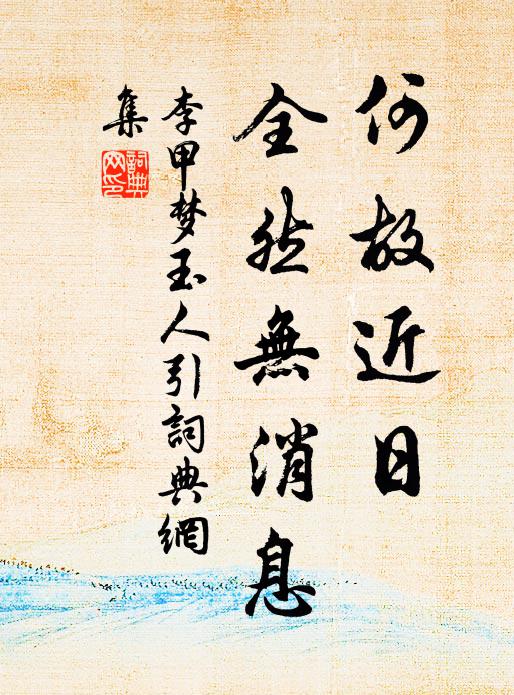 何故近日
全然無消息
李甲梦玉人引詞典網
集
詞典
网印